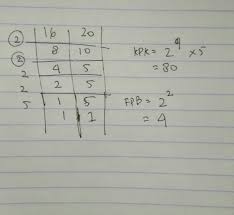 2 16 20
2 8 10
2 4 5
2 2 5
5 1 5
1 1
KPK = 2⁴ x 5
= 80
FPB = 2²
= 4